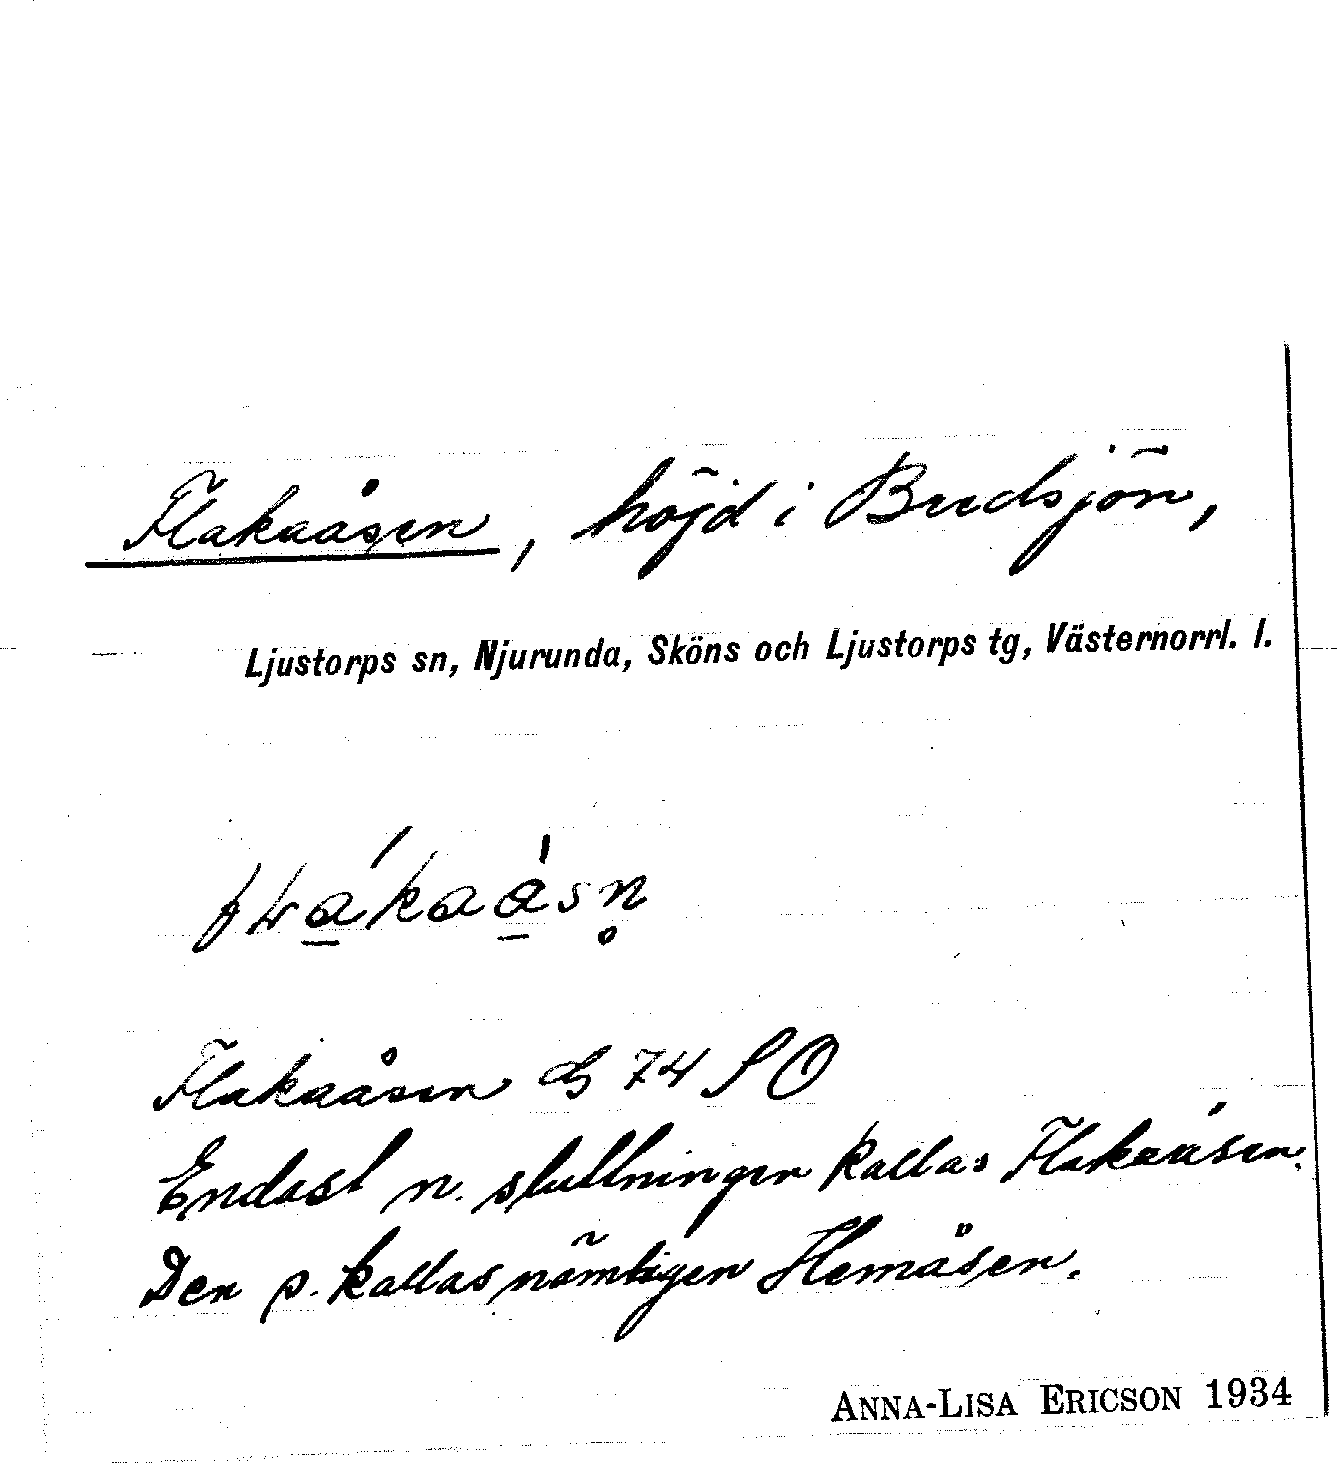 Flakaåsen, höjd i Bredsjön,
Ljustorps sn, Njurunda, Sköns och Ljustorps tg, Västernorrl. l.
Flakaåsen 74 SO
Endast n. sluttningen kallas Flakaåsen.
Den s. kallas nämligen Hemåsen.
ANNA-LISA ERICSON 1934